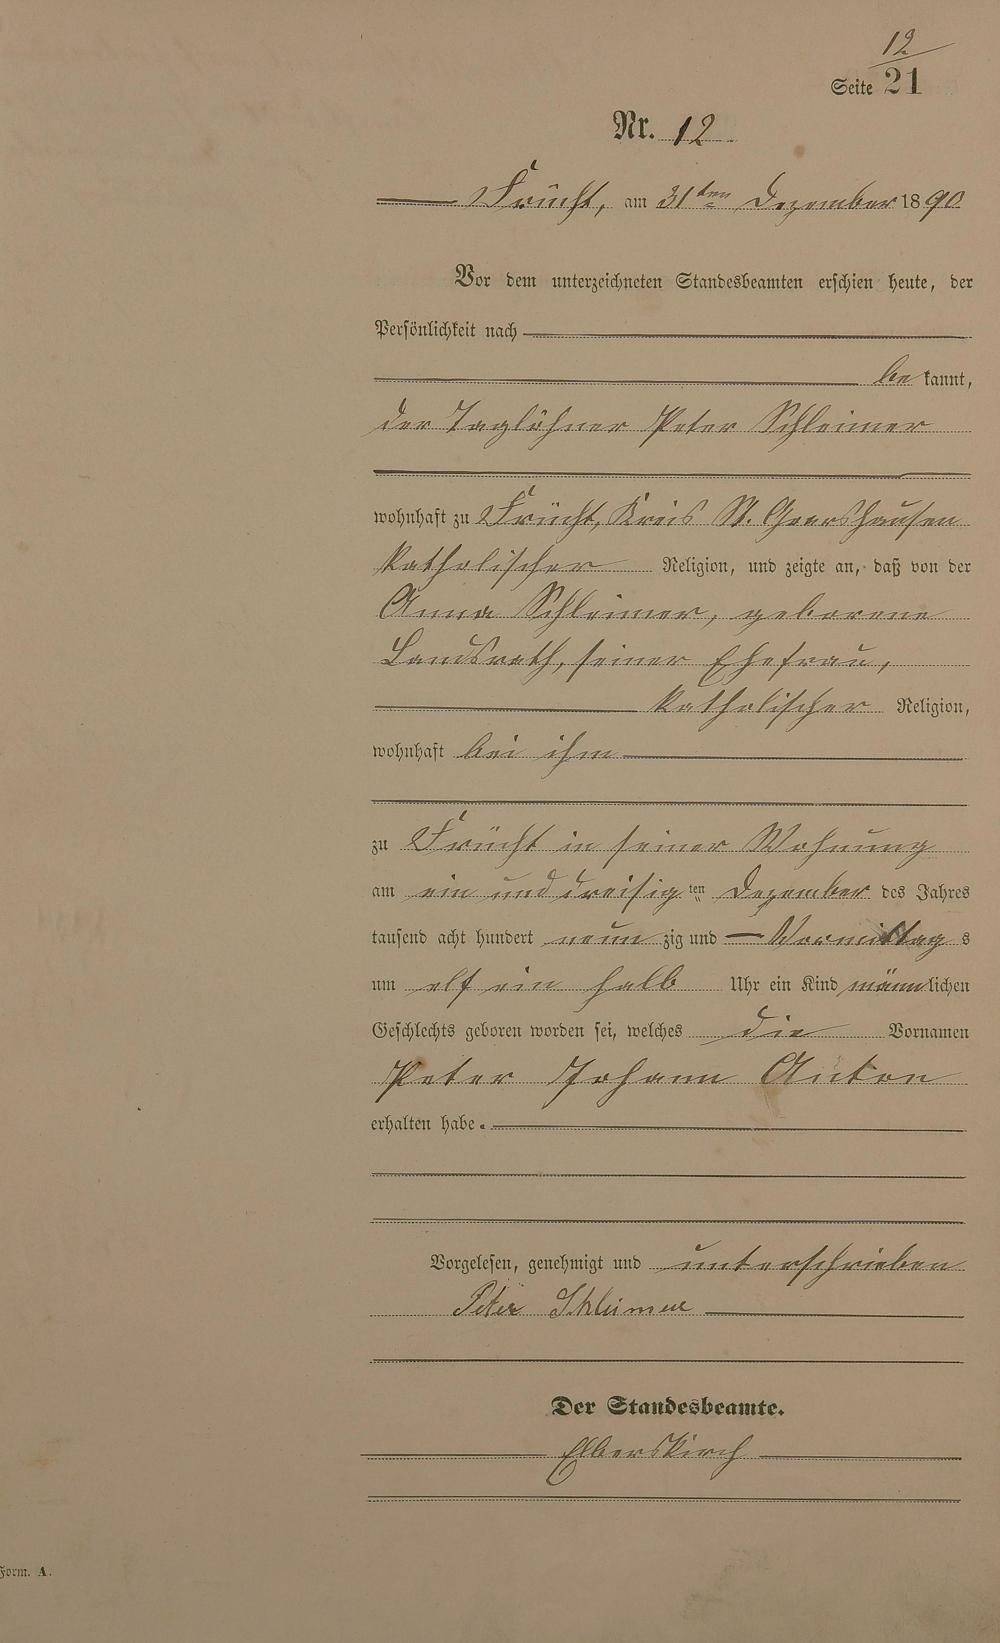 12
Seite 21
Nr. 12
Frücht, am 31ten Dezember 1890
Vor dem unterzeichneten Standesbeamten erschien heute, der
Persönlichkeit nach
bekannt,
der Taglöhner Peter Schleimer
wohnhaft zu Frücht, Kreis St. Goarshausen
katholischer Religion, und zeigte an, daß von der
Anna Schleimer, geborene
Landsrath, seiner Ehefrau,
katholischer Religion,
wohnhaft bei ihm
zu Frücht in seiner Wohnung
am ein und dreisigten Dezember des Jahres
tausend acht hundert neunzig und Vormittags
um elf ein halb Uhr ein Kind männlichen
Geschlechts geboren worden sei, welches die Vornamen
Peter Johann Anton
erhalten habe.
Vorgelesen, genehmigt und unterschrieben
Peter Schleimer
Der Standesbeamte.
Elberskirch
Form. A.